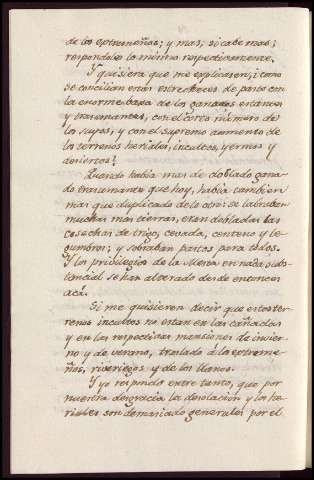 de los extremeños; y mas, si cabe mas;
respondoles lo mismo respectivamente.
Y quisiera que me explicasen, ¿como
se concilian estas estrecheces de pasto con
la enorme baxa de los ganados estantes
y trasumantes, con el corto numero de
los suyos, y con el supremo aumento de
los terrenos heriales, incultos, yermos y
desiertos?
Quando habia mas de doblado gana-
do trasumante que hoy, habia tambien
mas que duplicado de lo otro: se labraban
muchas mas tierras, eran dobladas las
cosechas de trigo, cevada, centeno y le-
gumbres; y sobraban pastos para todos.
Y los privilegios de la Mesta en nada subs-
tancial se han alterado desde entonces
acá.
Si me quisieren decir que estos ter-
renos incultos no estan en las cañadas
y en las respectivas mansiones de invier-
no y de verano, traslado á los extreme-
ños, riveriegos y de los llanos.
Y yo respondo entre tanto, que por
nuestra desgracia la desolacion y los he-
riales son demasiado generales por el